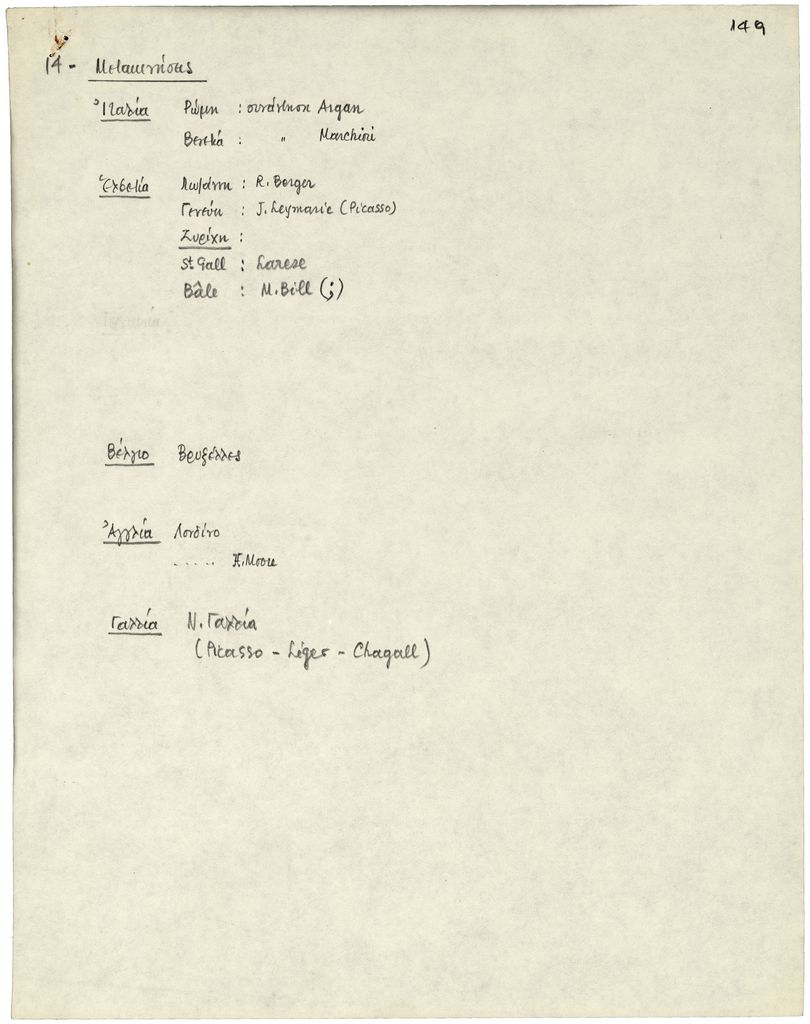 149
14 - Μετακινήσεις
Ἰταλία Ρώμη : συνάντηση Argan
Βενετιά : " Marchiori
Ἑλβετία Λωζάννη : R. Berger
Γενεύη : J. Leymarie (Picasso)
Ζυρίχη :
St Gall : Larese
Bâle : M. Bill (;)
Βέλγιο Βρυξέλλες
Ἀγγλία Λονδίνο
..... H. Moore
Γαλλία Ν. Γαλλία
(Picasso - Léger - Chagall)